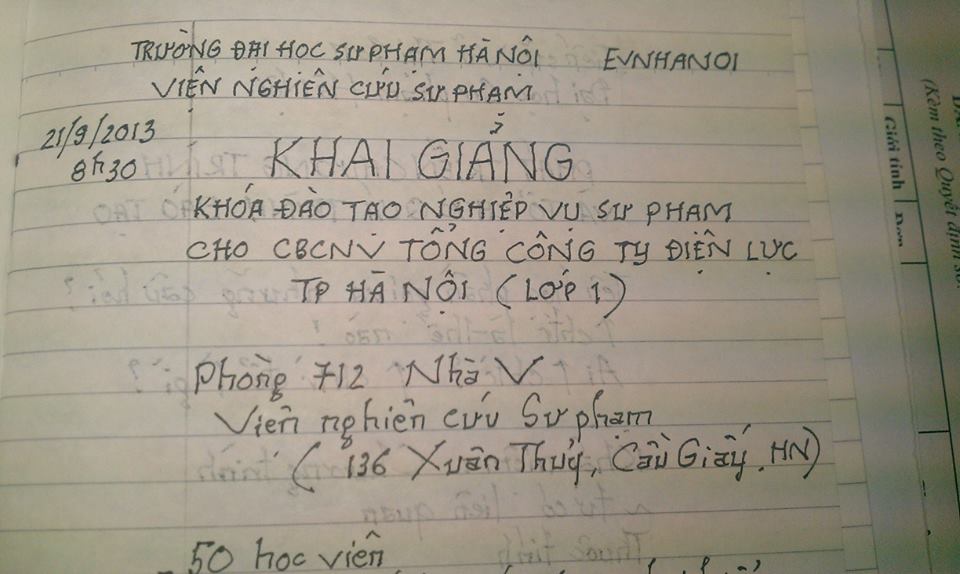 TRƯỜNG ĐẠI HỌC SƯ PHẠM HÀ NỘI EVNHANOI
VIỆN NGHIÊN CỨU SƯ PHẠM
21/9/2013
8h30
KHAI GIẢNG
KHÓA ĐÀO TẠO NGHIỆP VỤ SƯ PHẠM
CHO CBCNV TỔNG CÔNG TY ĐIỆN LỰC
TP HÀ NỘI (LỚP 1)
Phòng 712 Nhà V
Viện nghiên cứu Sư phạm
(136 Xuân Thủy, Cầu Giấy, HN)
50 học viên
(Kèm theo Quyết định số
Giới tính